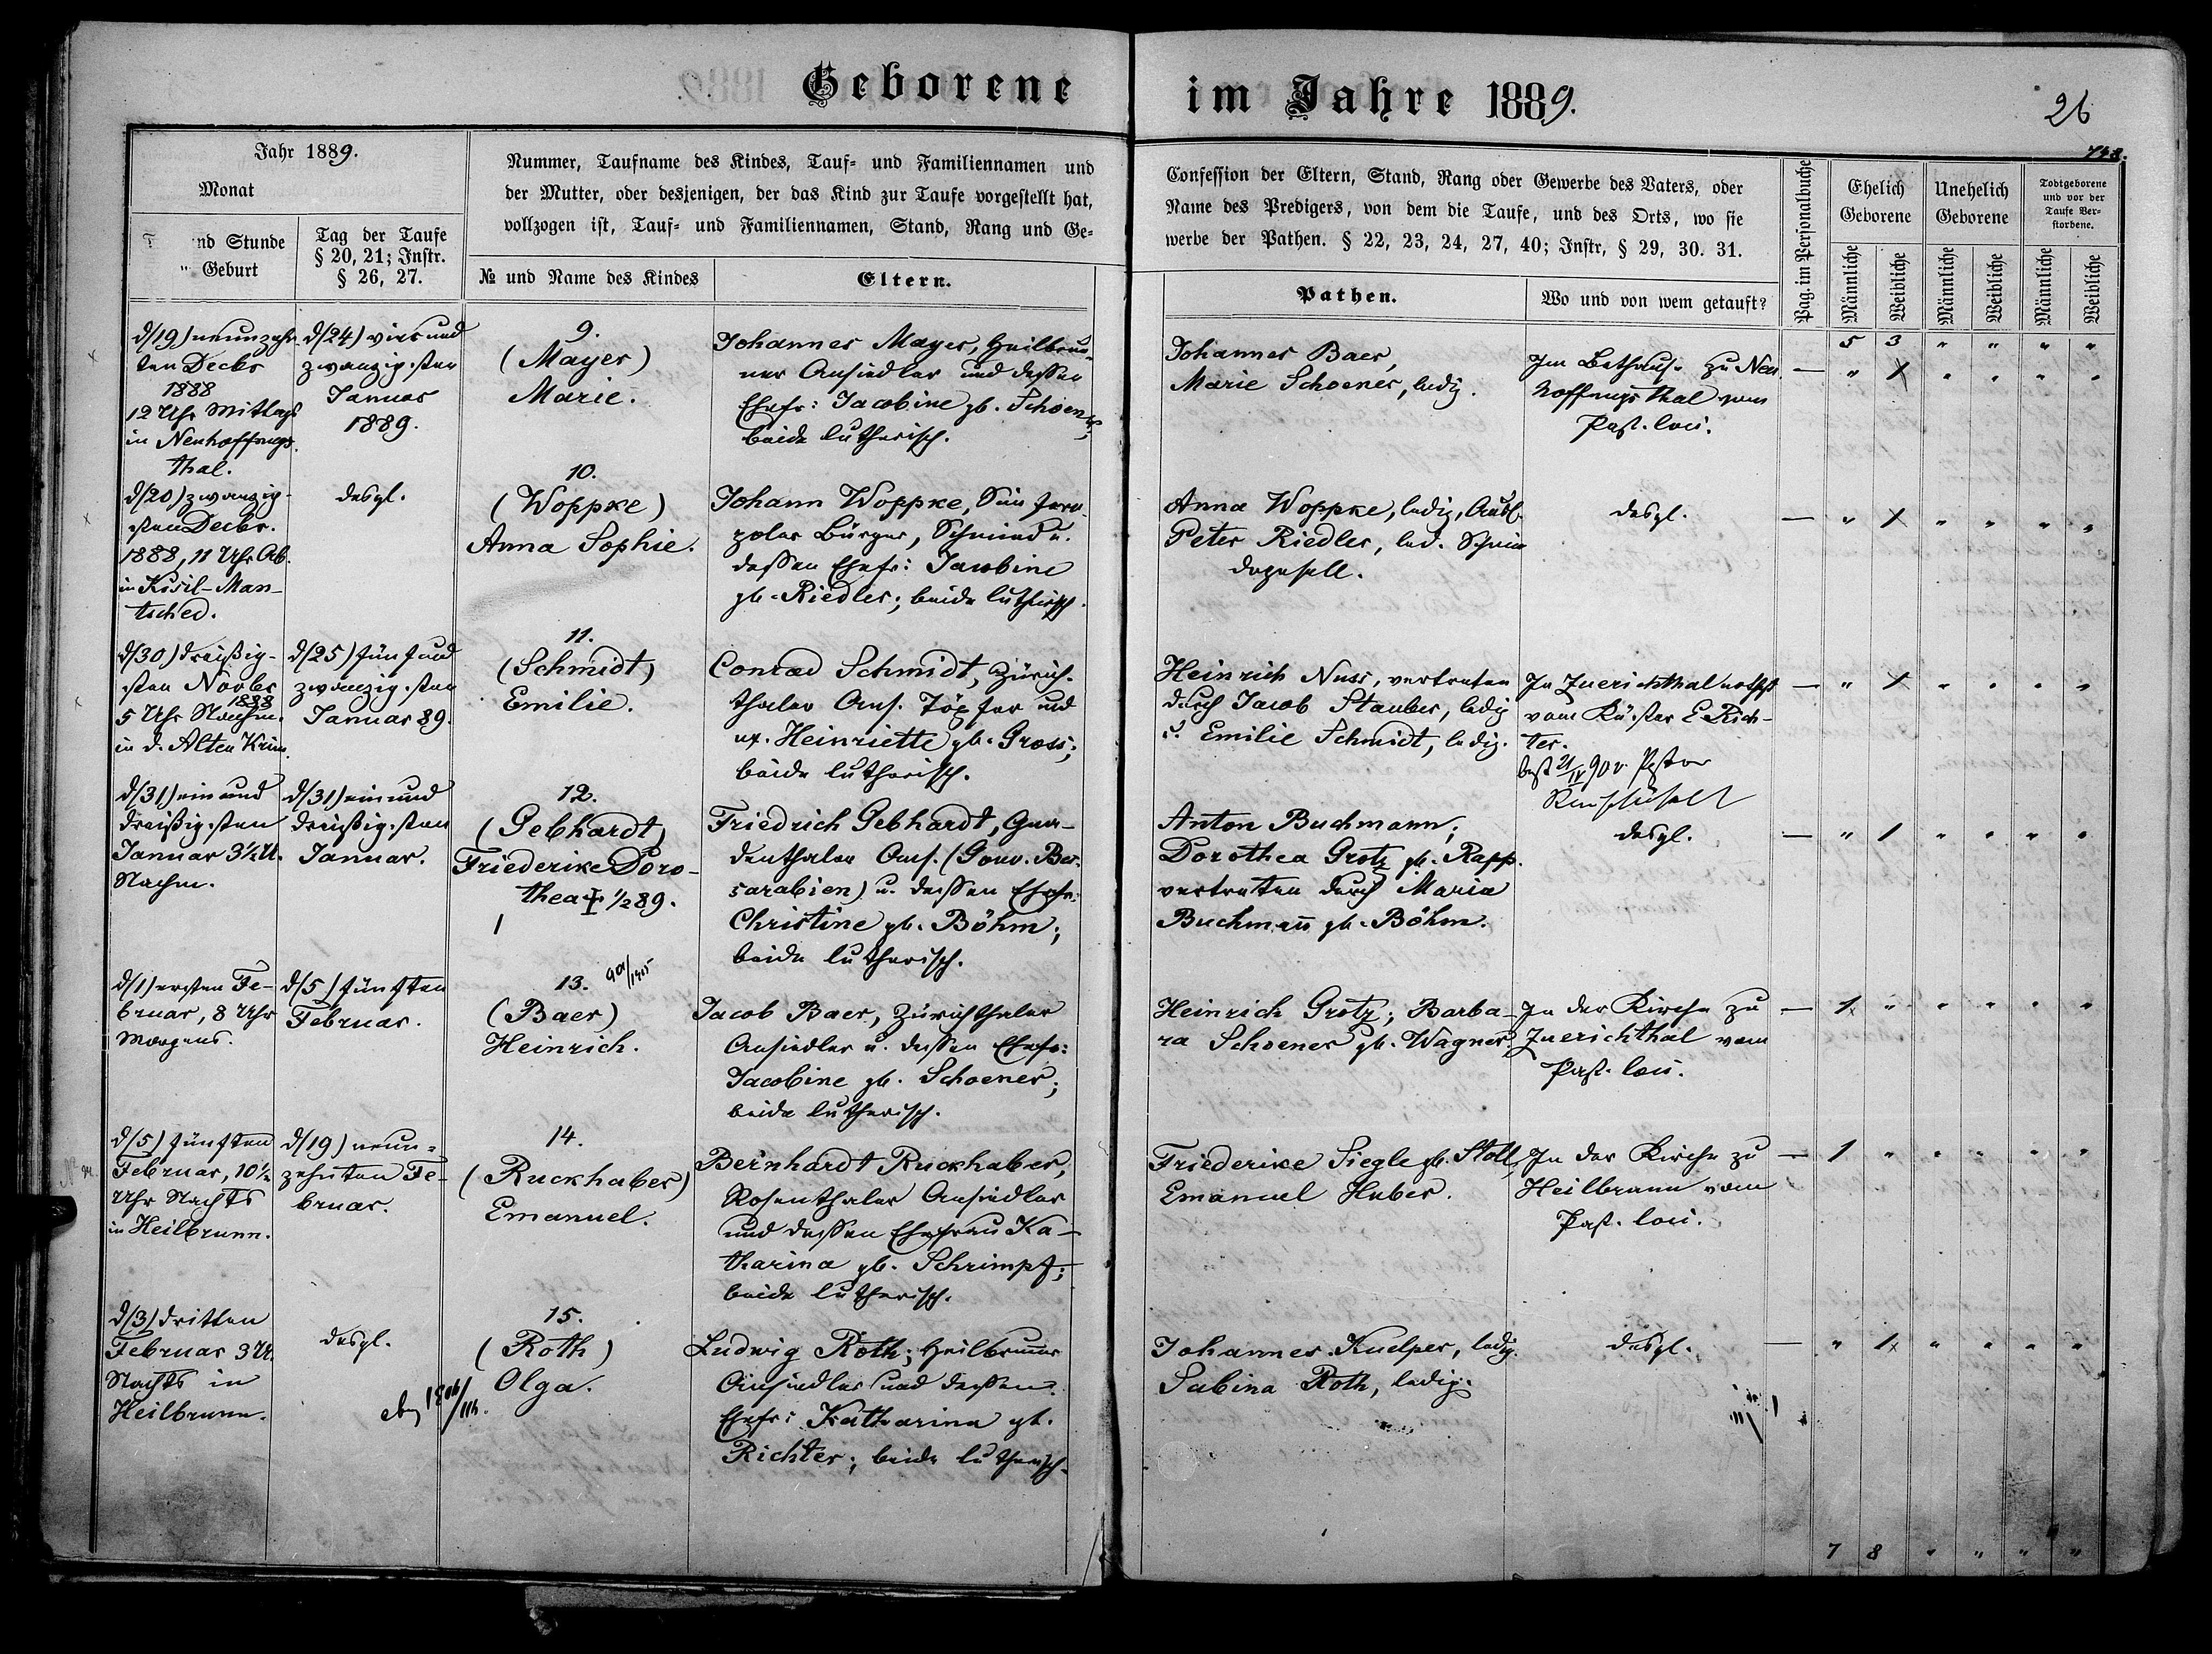 Geborene im Jahre 1889.
26
748.
Jahr 1889.
Monat
nd Stunde
Geburt
Tag der Taufe
§ 20, 21; Instr.
§ 26, 27.
Nummer, Taufname des Kindes, Tauf- und Familiennamen und
der Mutter, oder desjenigen, der das Kind zur Taufe vorgestellt hat,
vollzogen ist, Tauf- und Familiennamen, Stand, Rang und Ge-
№ und Name des Kindes
Eltern.
Confession der Eltern, Stand, Rang oder Gewerbe des Vaters, oder
Name des Predigers, von dem die Taufe, und des Orts, wo sie
werbe der Pathen. § 22, 23, 24, 27, 40; Instr, § 29, 30. 31.
Pathen.
Wo und von wem getauft?
Pag. im Personalbuche
Ehelich
Geborene
Unehelich
Geborene
Todtgeborene
und vor der
Taufe Ver-
storbene.
Männliche
Weibliche
Männliche
Weibliche
Männliche
Weibliche
5 3 " " " "
d/19) neunzehn-
ten Decbr
1888
12 Uhr Mittags
in Neuhoffnungs-
thal.
d/24) vier und
zwanzigsten
Januar
1889.
9.
(Mayer)
Marie.
Johannes Mayer, Heilbrun-
ner Ansiedler und dessen
Ehefr: Jacobine gb. Schoener,
beide lutherisch.
Johannes Baer,
Marie Schoener, ledig.
Im Bethause zu Neu
hoffnungsthal vom
Past.
d/20) zwanzig-
sten Decbr.
1888, 11 Uhr Ab.
in Kisil-Man-
tsched.
desgl.
10.
(Woppke)
Anna Sophie.
Johann Woppke, Simfero-
poler Bürger, Schmied u.
dessen Ehefr: Jacobine
gb. Riedler; beide lutherisch.
Anna Woppke, ledig,
Peter Riedler, led. Schmie
degesell.
desgl.
d/30) dreißig-
sten Novbr
1888
5 Uhr Nachm.
in d. Alten Krim
d/25) fünf und
zwanzigsten
Januar 89.
11.
(Schmidt)
Emilie.
Conrad Schmidt, Zürich-
thaler Ans. Töpfer und
ux. Heinriette gb. Gross;
beide lutherisch.
Heinrich Nuss, vertreten
durch Jacob Stauber, ledig
u. Emilie Schmidt, ledig.
In Zuerichthal
vom Küster E. Rich-
ter.
best 21/IV 90 v. Pastor
d/31) ein und
dreißigsten
Januar 3½ U.
Nachm.
d/31) ein und
dreißigsten
Januar.
12.
(Gebhardt)
Friederike Doro-
thea ½ 89.
Friedrich Gebhardt, Gna-
denthaler Ans. (Gouv. Bes-
sarabien) u. dessen Ehefr:
Christine gb. Böhm;
beide lutherisch.
Anton Buchmann;
Dorothea Grotz gb. Rapp.
vertreten durch Maria
Buchmann gb. Böhm.
desgl.
d/1) ersten Fe-
bruar, 8 Uhr
Morgens.
d/5) fünften
Februar.
13.
(Baer)
Heinrich.
Jacob Baer, Zürichthaler
Ansiedler u. dessen Ehefr:
Jacobine gb. Schoener;
beide lutherisch.
Heinrich Grotz; Barba-
ra Schoener gb. Wagner.
In der Kirche zu
Zuerichthal vom
Past.
d/5) fünften
Februar, 10½
Uhr Nachts
in Heilbrunn.
d/19) neun-
zehnten Fe-
bruar.
14.
(Ruckhaber)
Emanuel.
Bernhardt Ruckhaber,
Rosenthaler Ansiedler
und dessen Ehefrau Ka-
tharina gb. Schrimpf;
beide lutherisch.
Friederike Siegle gb. Stoll,
Emanuel Huber.
In der Kirche zu
Heilbrunn vom
Past.
d/3) dritten
Februar 3 U.
Nachts in
Heilbrunn.
desgl.
15.
(Roth)
Olga.
Ludwig Roth; Heilbrunner
Ansiedler und dessen
Ehefr: Katharina gb.
Richter; beide lutherisch.
Johannes Kuelper, ledig.
Sabina Roth, ledig.
desgl.
7 8 " " " "